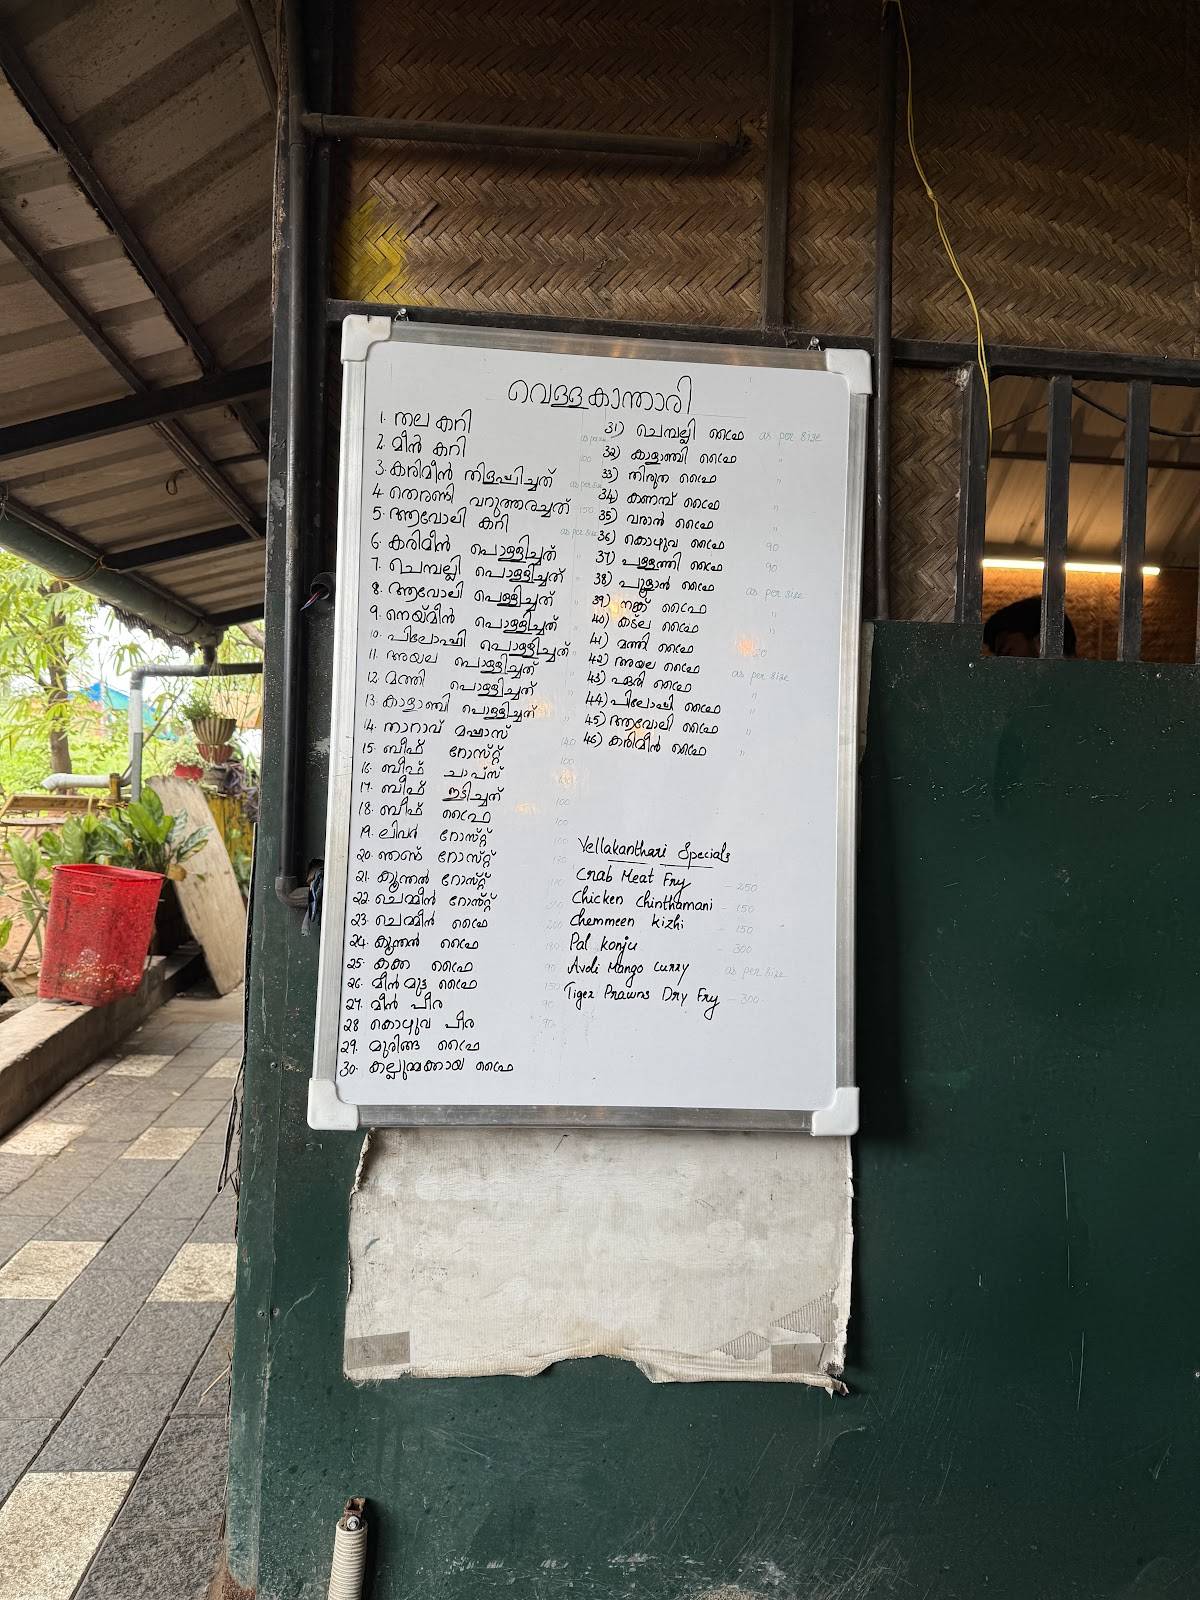 വെള്ളകാന്താരി
1. തല കറി as per size
2. മീൻ കറി 100
3. കരിമീൻ തിളപ്പിച്ചത് as per size
4. തെരണ്ടി വറുത്തരച്ചത് 150
5. ആവോലി കറി as per size
6. കരിമീൻ പൊള്ളിച്ചത് "
7. ചെമ്പല്ലി പൊള്ളിച്ചത് "
8. ആവോലി പൊള്ളിച്ചത് "
9. നെയ്മീൻ പൊള്ളിച്ചത് "
10. പിലോപ്പി പൊള്ളിച്ചത് "
11. അയല പൊള്ളിച്ചത് "
12. മത്തി പൊള്ളിച്ചത് "
13. കാളാഞ്ചി പൊള്ളിച്ചത് "
14. താറാവ് മപ്പാസ് 140
15. ബീഫ് റോസ്റ്റ് 100
16. ബീഫ് ചാപ്സ്
17. ബീഫ് ഇടിച്ചത് 100
18. ബീഫ് ഫ്രൈ 100
19. ലിവർ റോസ്റ്റ് 100
20. ഞണ്ട് റോസ്റ്റ്
21. കൂന്തൽ റോസ്റ്റ്
22. ചെമ്മീൻ റോസ്റ്റ്
23. ചെമ്മീൻ ഫ്രൈ 200
24. കൂന്തൽ ഫ്രൈ 180
25. കക്ക ഫ്രൈ 90
26. മീൻ മുട്ട ഫ്രൈ 150
27. മീൻ പീര 90
28 കൊഴുവ പീര 90
29. മുരിങ്ങ ഫ്രൈ
30. കല്ലുമ്മക്കായ ഫ്രൈ
31) ചെമ്പല്ലി ഫ്രൈ as per size
32) കാളാഞ്ചി ഫ്രൈ "
33) തിരുത ഫ്രൈ "
34) കണമ്പ് ഫ്രൈ "
35) വരാൽ ഫ്രൈ "
36) കൊഴുവ ഫ്രൈ 90
37) പള്ളത്തി ഫ്രൈ 90
38) പൂളാൻ ഫ്രൈ as per size
39) നങ്ക് ഫ്രൈ "
40) കട്ല ഫ്രൈ "
41) മത്തി ഫ്രൈ
42) അയല ഫ്രൈ as per size
43) ഏരി ഫ്രൈ "
44) പിലോപ്പി ഫ്രൈ "
45) ആവോലി ഫ്രൈ "
46) കരിമീൻ ഫ്രൈ "
Vellakanthari Specials
Crab Meat Fry - 250
Chicken Chinthamani - 150
Chemmeen kizhi - 150
Pal konju - 300
Avoli Mango curry as per size
Tiger Prawns Dry Fry - 300